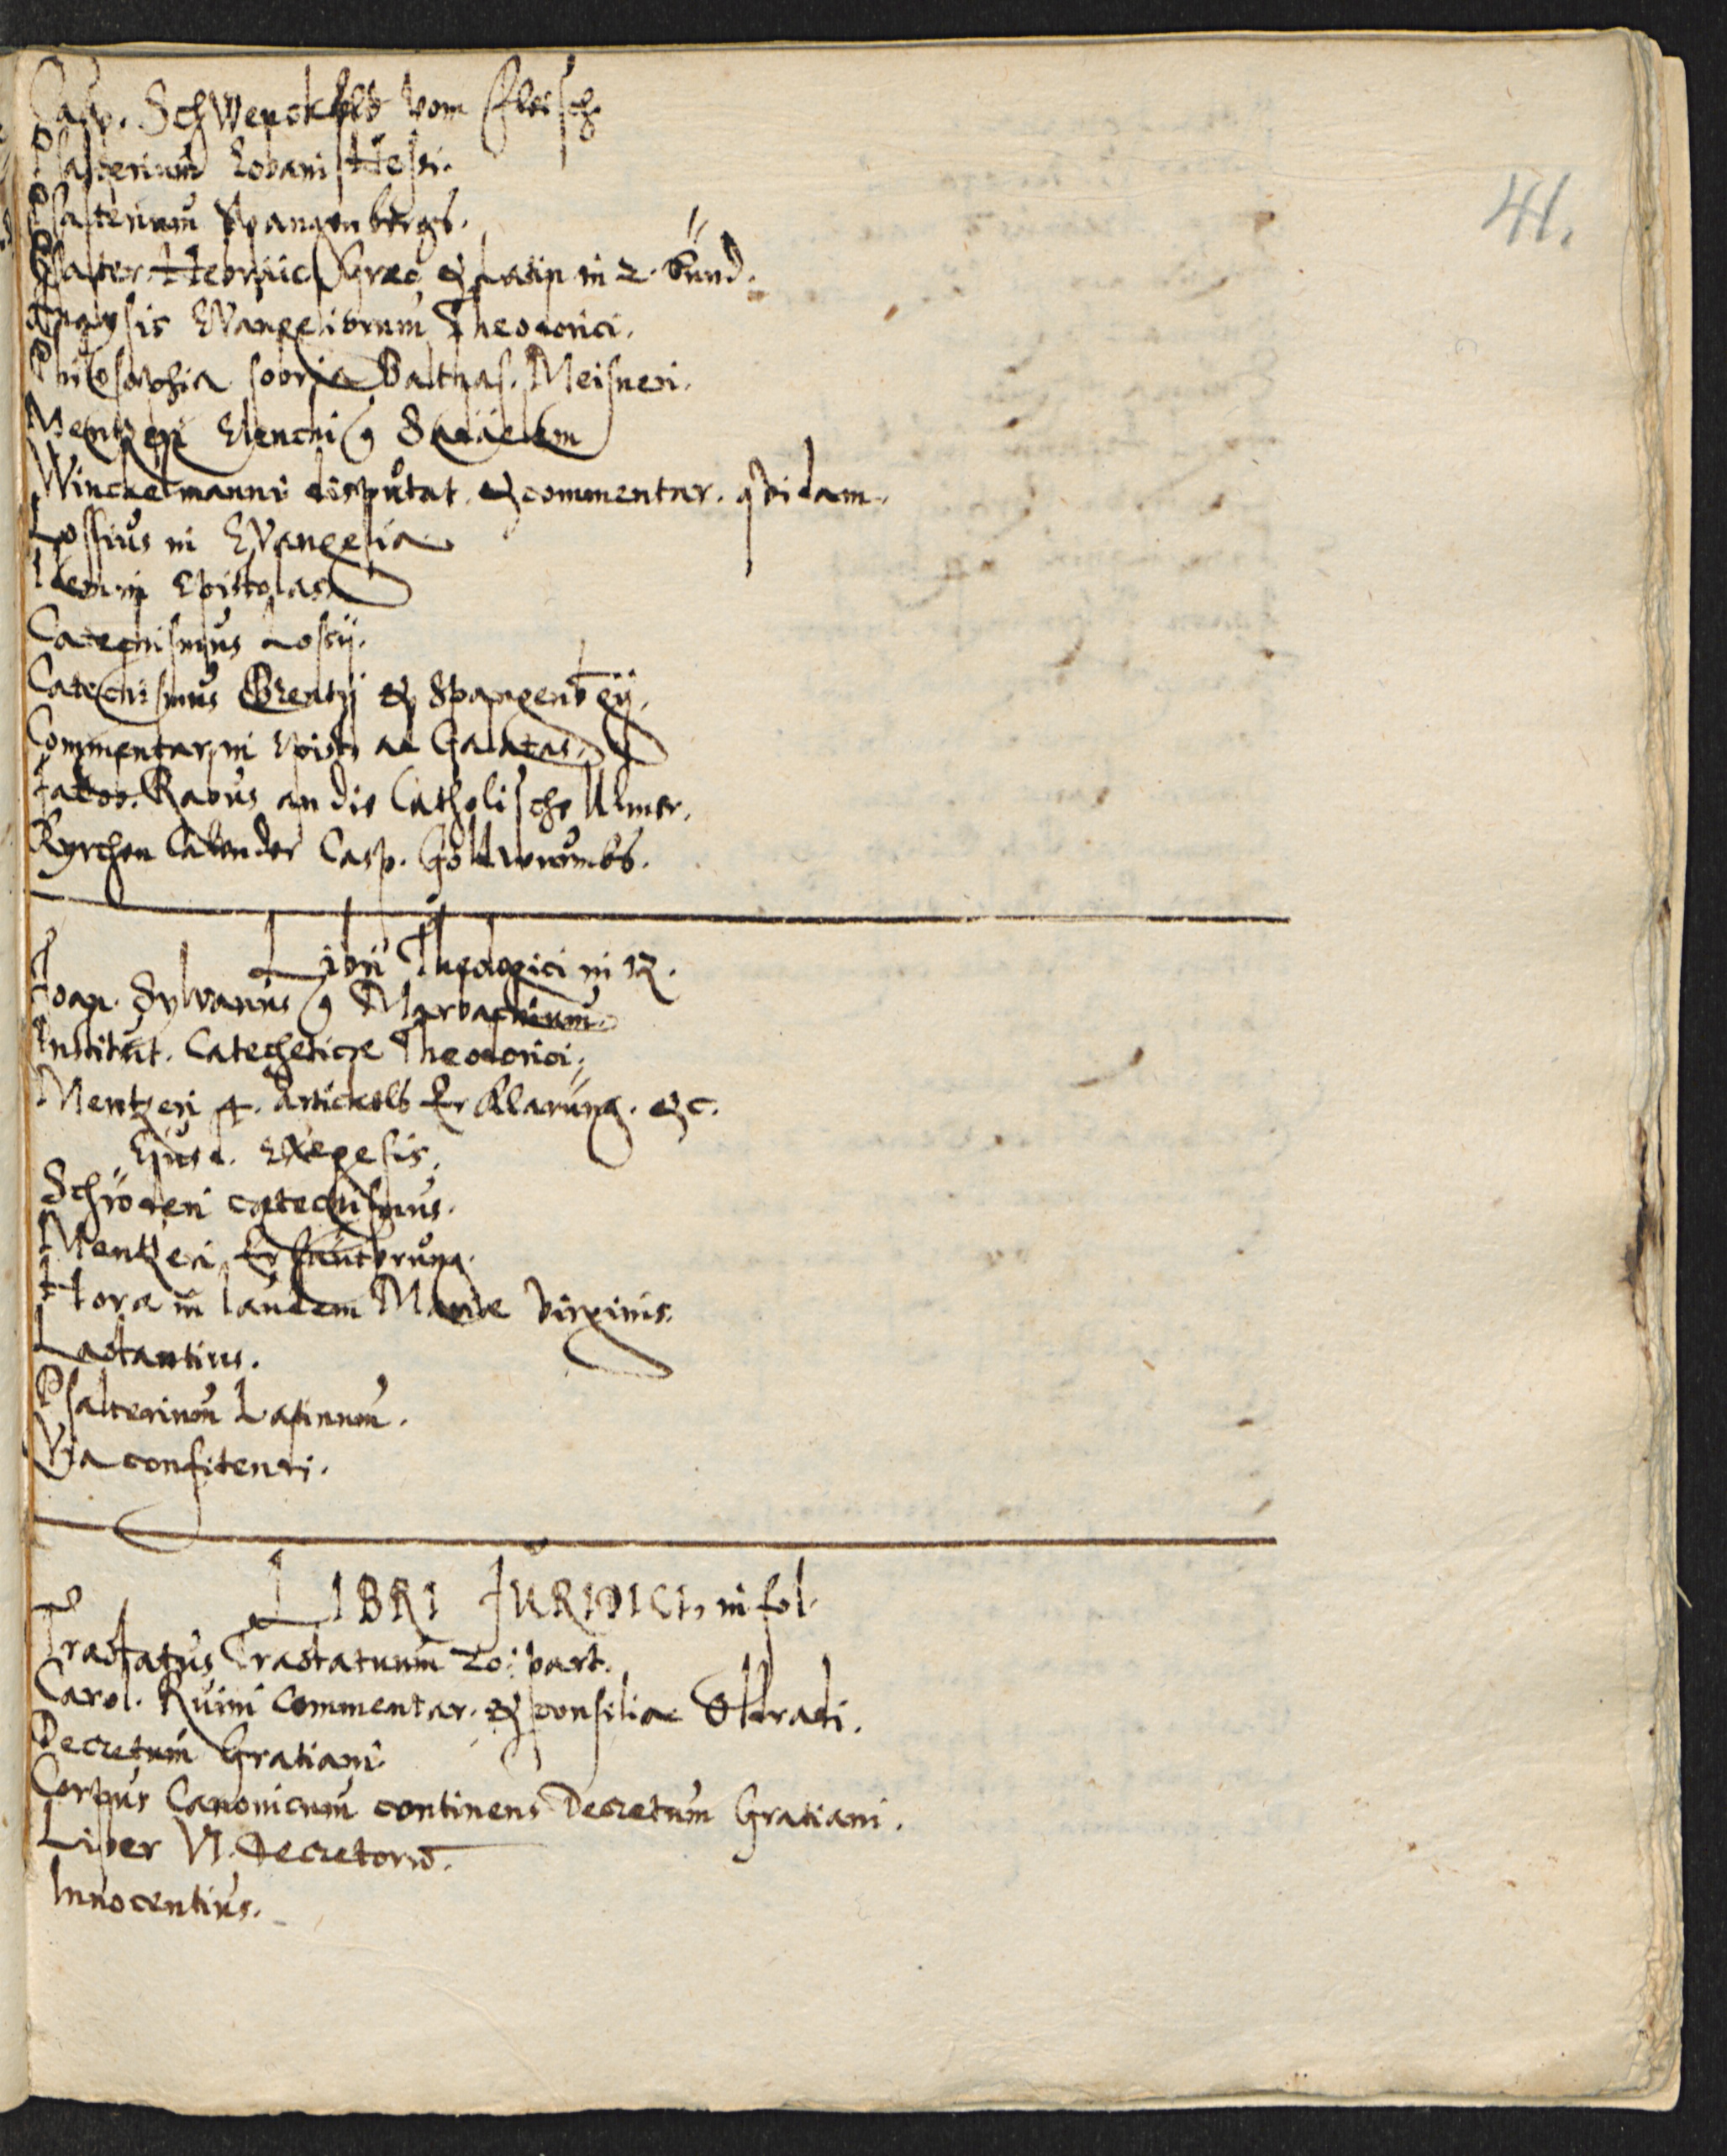 41.
Casp. Schwenckfeld vom Fleisch
Psalterium Eobani Hessi.
Psalterium Spangenbergs.
Psalter. Hebraic. Graec & Latin in 2. bünd.
Analysis Evangeliorum Theodorici.
Philosophia sobria Balthas. Meisneri.
Mentzeri Elenchi 9 Sadeelem
Winckelmanni disputat. & commentar. quidam.
Lossius in Evangelia
Idem in Epistolas
Catechismus Lossij.
Catechismus Brentij & Spangenbergij.
Commentar. in Epist. ad Galatas.
Jacob. Rabus an die Catholische Ulmer.
Kyrchen Calender Casp. Goldwurmbs.
Libri Theologici in 12.
Joan. Sylvanus 9 Marbachium.
Institut. Catecheticae Theodorici.
Mentzeri 4. Artickels Erklärung. &c.
Ejusd. Exegesis.
Schröderi catechismus.
Mentzeri Erleüterung.
Hora in laudem Mariae Virginis.
Lactantius.
Psalterium Latinum.
Via confitendi.
LIBRI JURIDICI, in fol.
Tractatus Tractatuum 20. part.
Carol. Ruini Commentar. & consilia Oldradi.
Decretum Gratiani.
Corpus Canonicum continens Decretum Gratiani.
Liber VI. Decretorū.
Innocentius.